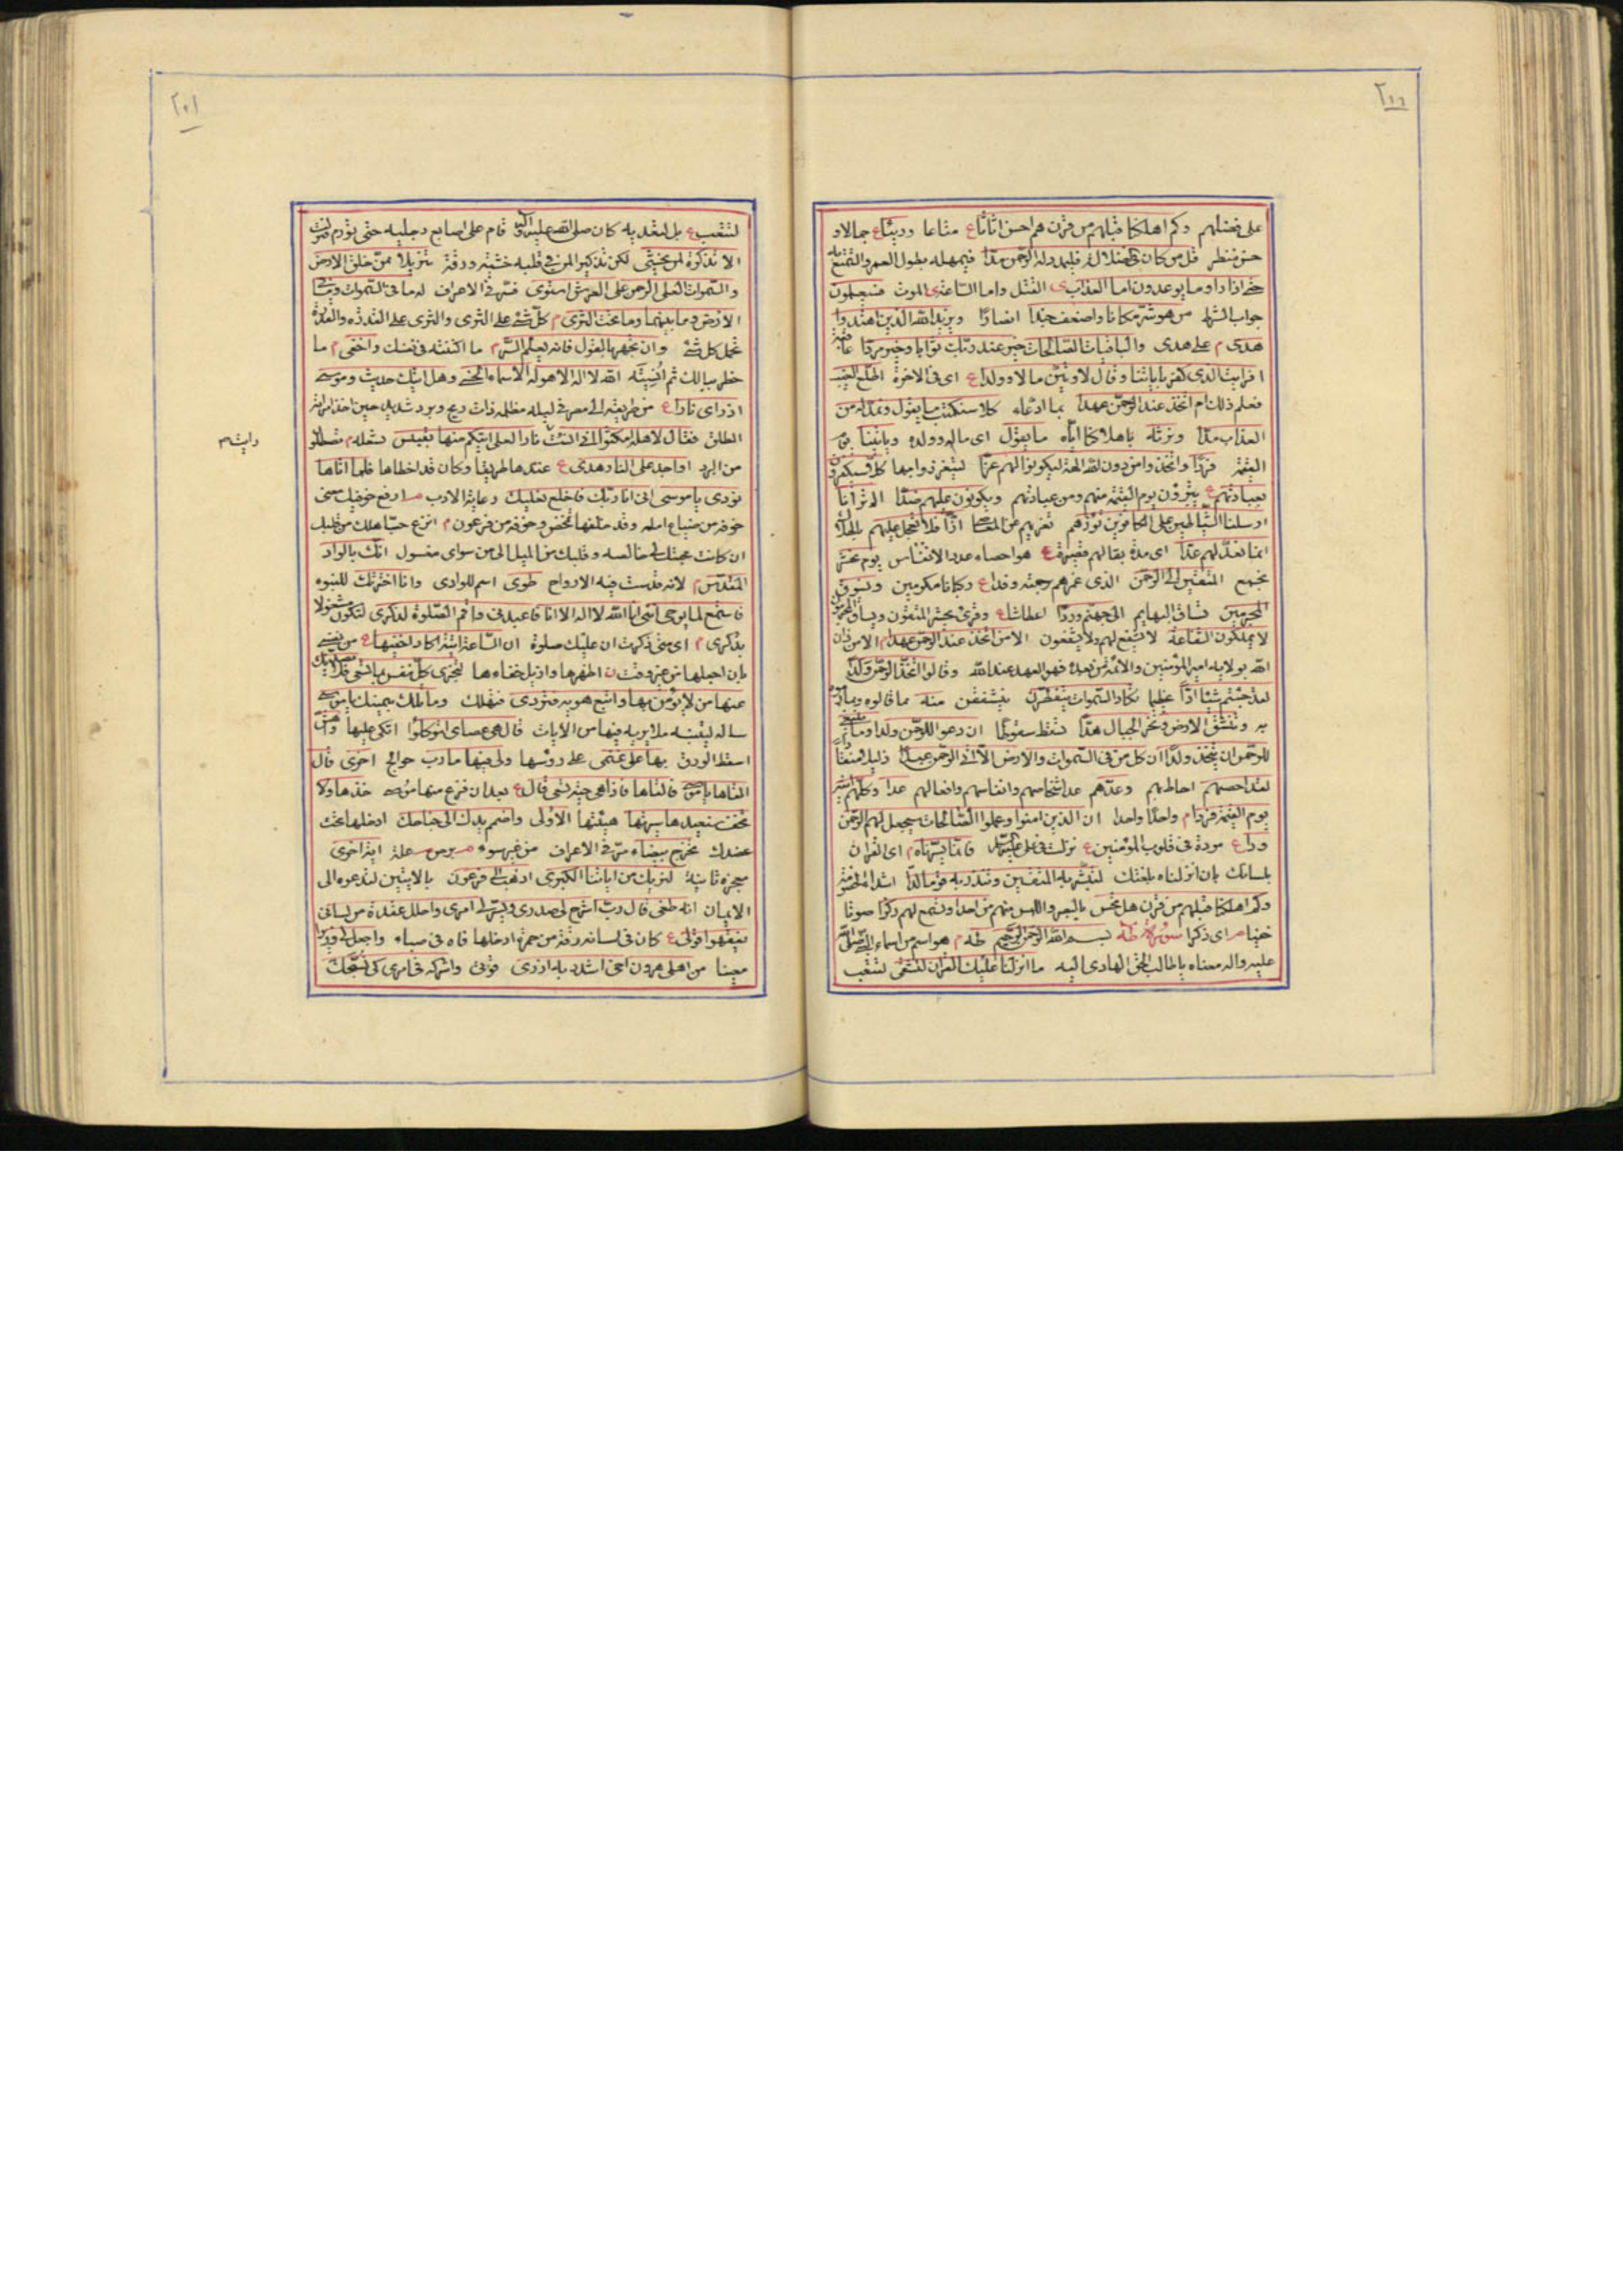 على فضلهم وكم اهلكنا قبلهم من قرن هم احسن اثاثا ع متاعا ورءيا ع جمالا و
حسن منظر قل من كان في الضلالة فليمدد له الرحمن مدا فيمهله بطول العمر والتمتع به
حتى اذا راوا ما يوعدون اما العذاب ى القتل واما الساعة ى الموت فسيعلمون
جواب الشرط من هو شر مكانا واضعف جندا انصارا ويزيد الله الذين اهتدوا
هدى م على هدى والباقيات الصالحات خير عند ربك ثوابا وخير مردا عاقبة
افرايت الذى كفر باياتنا وقال لاوتين مالا وولدا ع اى فى الاخرة اطلع الغيب
فعلم ذلك ام اتخذ عند الرحمن عهدا بما ادعاه كلا سنكتب ما يقول ونمد له من
العذاب مدا ونرثه باهلاكنا اياه ما يقول اى ماله وولده وياتينا يوم
القيمة فردا واتخذوا من دون الله الهة ليكونوا لهم عزا ليتعززوا بها كلا سيكفرون
بعبادتهم ع يتبرؤن يوم القيمة منهم ومن عبادتهم ويكونون عليهم ضدا الم تر انا
ارسلنا الشياطين على الكافرين تؤزهم تغريهم على المعاصى ازا فلا تعجل عليهم بالهلاك
انما نعد لهم عدا اى مدة بقائهم قصيرة ع هو احصاء عدد الانفاس يوم نحشر
نجمع المتقين الى الرحمن الذى غمرهم رحمته وفدا ع ركبانا مكرمين ونسوق
المجرمين تساق البهايم الى جهنم وردا عطاشا ع وقرئ يحشر المتقون ويساق المجرمون
لا يملكون الشفاعة لا يشفع لهم ولا يشفعون الا من اتخذ عند الرحمن عهدا م الا من دان
الله بولاية امير المؤمنين والائمة من بعده فهو العهد عند الله وقالوا اتخذ الرحمن ولدا
لقد جئتم شيئا ادا عظيما تكاد السموات يتفطرن يتشققن منه مما قالوه ومما
به وتنشق الارض وتخر الجبال هدا تسقط سقوطا ان دعوا للرحمن ولدا وما ينبغى
للرحمن ان يتخذ ولدا ان كل من فى السموات والارض الا اتى الرحمن عبدا ذليلا منقادا
لقد احصيهم احاط بهم وعدهم عد اشخاصهم وانفاسهم وافعالهم عدا وكلهم اتيه
يوم القيمة فردا م واحدا واحدا ان الذين امنوا وعملوا الصالحات سيجعل لهم الرحمن
ودا ع مودة فى قلوب المؤمنين ع نزلت فى على عليه السلام فانما يسرناه م اى القران
بلسانك بان انزلناه بلغتك لتبشر به المتقين وتنذر به قوما لدا اشداء الخصومة
وكم اهلكنا قبلهم من قرن هل تحس بالبصر واللمس منهم من احد او تسمع لهم ركزا صوتا
خفيا اى ذكرا سورة طه بسم الله الرحمن الرحيم طه م هو اسم من اسماء النبى صلى الله
عليه واله معناه يا طالب الحق الهادى اليه ما انزلنا عليك القران لتشقى لتتعب
لتتعب ع بل لتسعد به كان صلى الله عليه واله قام على اصابع رجليه حتى تورم فنزلت
الا تذكرة لمن يخشى لكن تذكيرا لمن فى قلبه خشية ورقة تنزيلا ممن خلق الارض
والسموات العلى الرحمن على العرش استوى فسر فى الاعراف له ما فى السموات وما فى
الارض وما بينهما وما تحت الثرى م كل شئ على الثرى والثرى على القدرة والقدرة
تحمل كل شئ وان تجهر بالقول فانه يعلم السر م ما اكننته فى نفسك واخفى م ما
خطر ببالك ثم انسيته الله لا اله الا هو له الاسماء الحسنى وهل اتيك حديث موسى
اذ راى نارا ع من طريقه الى مصر فى ليلة مظلمة ذات ريح وبرد شديد حين اخذ امراته
الطلق فقال لاهله امكثوا انى انست نارا لعلى اتيكم منها بقبس شعلة م تصطلون
من البرد او اجد على النار هدى ع عندها طريقا وكان قد اخطاها فلما اتاها
نودى يا موسى انى انا ربك فاخلع نعليك رعاية الادب ارفع خوفيك يعنى
خوفه من ضياع اهله وقد خلفها تمخض وخوفه من فرعون م انزع حب اهلك من قلبك
ان كانت محبتك لى خالصة وقلبك من الميل الى من سواى مغسول انك بالواد
المقدس م لانه قدست فيه الارواح طوى اسم للوادى وانا اخترتك للنبوة
فاستمع لما يوحى اننى انا الله لا اله الا انا فاعبدنى واقم الصلوة لذكرى لتكون مشغولا
بذكرى م اى متى ذكرت ان عليك صلوة ان الساعة اتية اكاد اخفيها ع من نفسى
بان اجعلها من غير وقت ن اظهرها وازيل خفاءها لتجزى كل نفس بما تسعى فلا يصدنك
عنها من لا يؤمن بها واتبع هويه فتردى فتهلك وما تلك بيمينك يا موسى
ساله ليتنبه ما يريه فيها من الايات قال هى عصاى اتوكؤا اتكئ عليها واهش
اسقط الورق بها على غنمى على رؤسها ولى فيها مارب حوائج اخرى قال
القاها يا موسى فالقاها فاذا هى حية تسعى قال ع بعد ان فزع منها موسى خذها ولا
تخف سنعيدها سيرتها هيئتها الاولى واضمم يدك الى جناحك ادخلها تحت
عضدك تخرج بيضاء مر فى الاعراف من غير سوء برص علة اية اخرى
معجزة ثانية لنريك من اياتنا الكبرى اذهب الى فرعون بالايتين لتدعوه الى
الايمان انه طغى قال رب اشرح لى صدرى ويسر لى امرى واحلل عقدة من لسانى
يفقهوا قولى ع كان فى لسانه رتة من جمرة ادخلها فاه فى صباه واجعل لى وزيرا
معينا من اهلى هرون اخى اشدد به ازرى قوتى واشركه فى امرى كى نسبحك